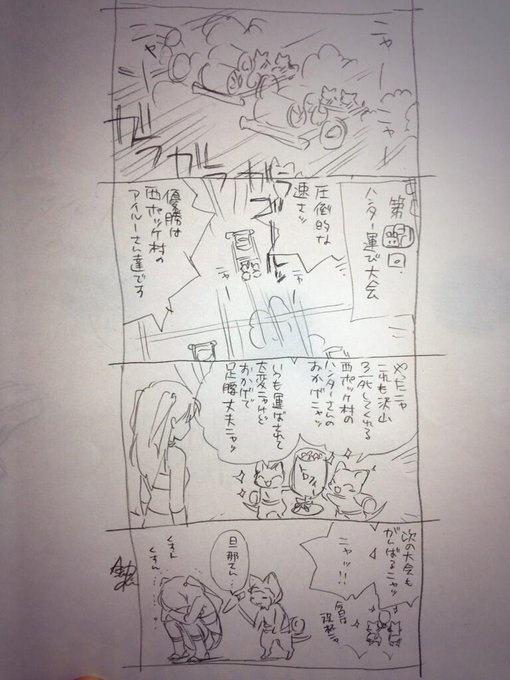 ニャー
ニャー
ガラガラガラ
第
回
ハンター運び大会
圧倒的な
速さッ
ニャー
ニャー
優勝は
西ポッケ村の
アイルーさん達です
やったニャ
これも沢山
3死してくれる
西ポッケ村の
ハンターさんの
おかげニャッ
いつも運ばされて
大変ニャけど
おかげで
足腰丈夫ニャッ
トロフィー
次の大会も
がんばるニャッ
ニャッ!!
旦那さん…
くすん
くすん…